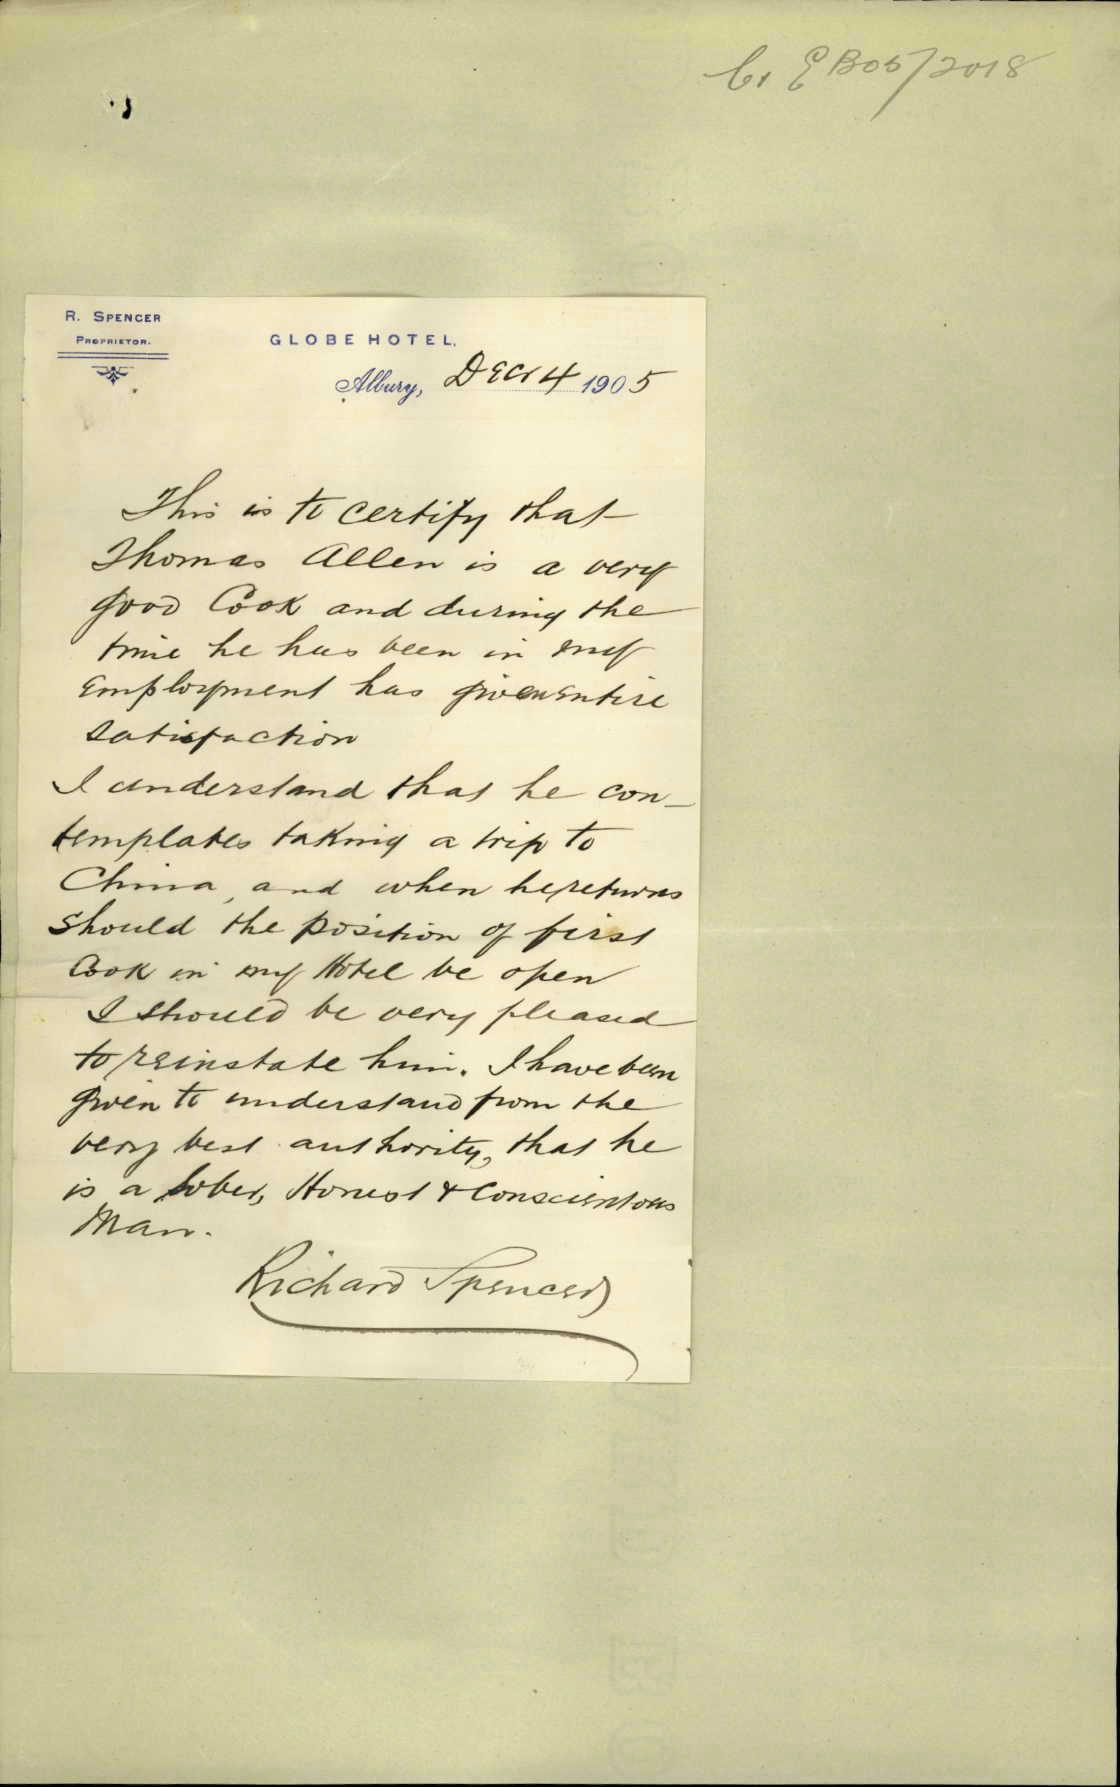 C. E B05/2018
R. SPENCER
PROPRIETOR.
GLOBE HOTEL.
Albury, Decr 4 1905
This is to certify that
Thomas Allen is a very
good Cook and during the
time he has been in my
Employment has given entire
satisfaction
I understand that he con-
templates taking a trip to
China, and when he returns
should the position of first
Cook in my Hotel be open
I should be very pleased
to reinstate him. I have been
given to understand from the
very best authority, that he
is a sober, Honest & Conscientous
Man.
Richard Spencer